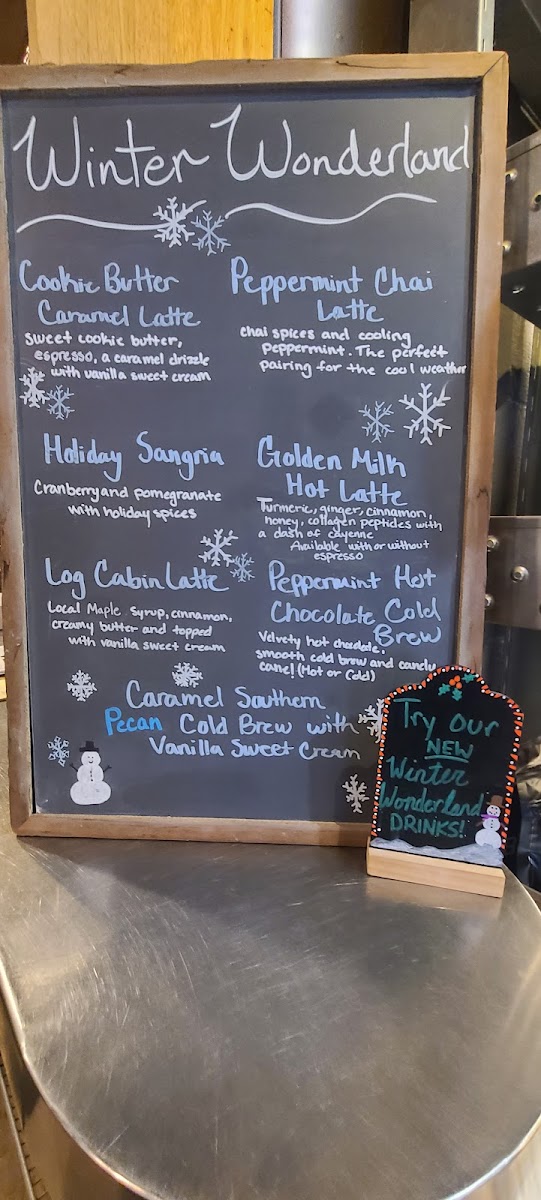 Winter Wonderland
Cookie Butter
Caramel Latte
Sweet cookie butter,
espresso, a caramel drizzle
with vanilla sweet cream
Peppermint Chai
Latte
chai spices and cooling
peppermint. The perfect
pairing for the cool weather
Holiday Sangria
Cranberry and pomegranate
with holiday spices
Golden Milk
Hot Latte
Turmeric, ginger, cinnamon,
honey, collagen peptides with
a dash of cayenne
Available with or without
espresso
Log Cabin Latte
Local Maple syrup, cinnamon,
creamy butter and topped
with vanilla sweet cream
Peppermint Hot
Chocolate Cold
Brew
Velvety hot chocolate,
smooth cold brew and candy
cane! (Hot or Cold)
Caramel Southern
Pecan Cold Brew with
Vanilla Sweet Cream
Try our
NEW
Winter
Wonderland
DRINKS!